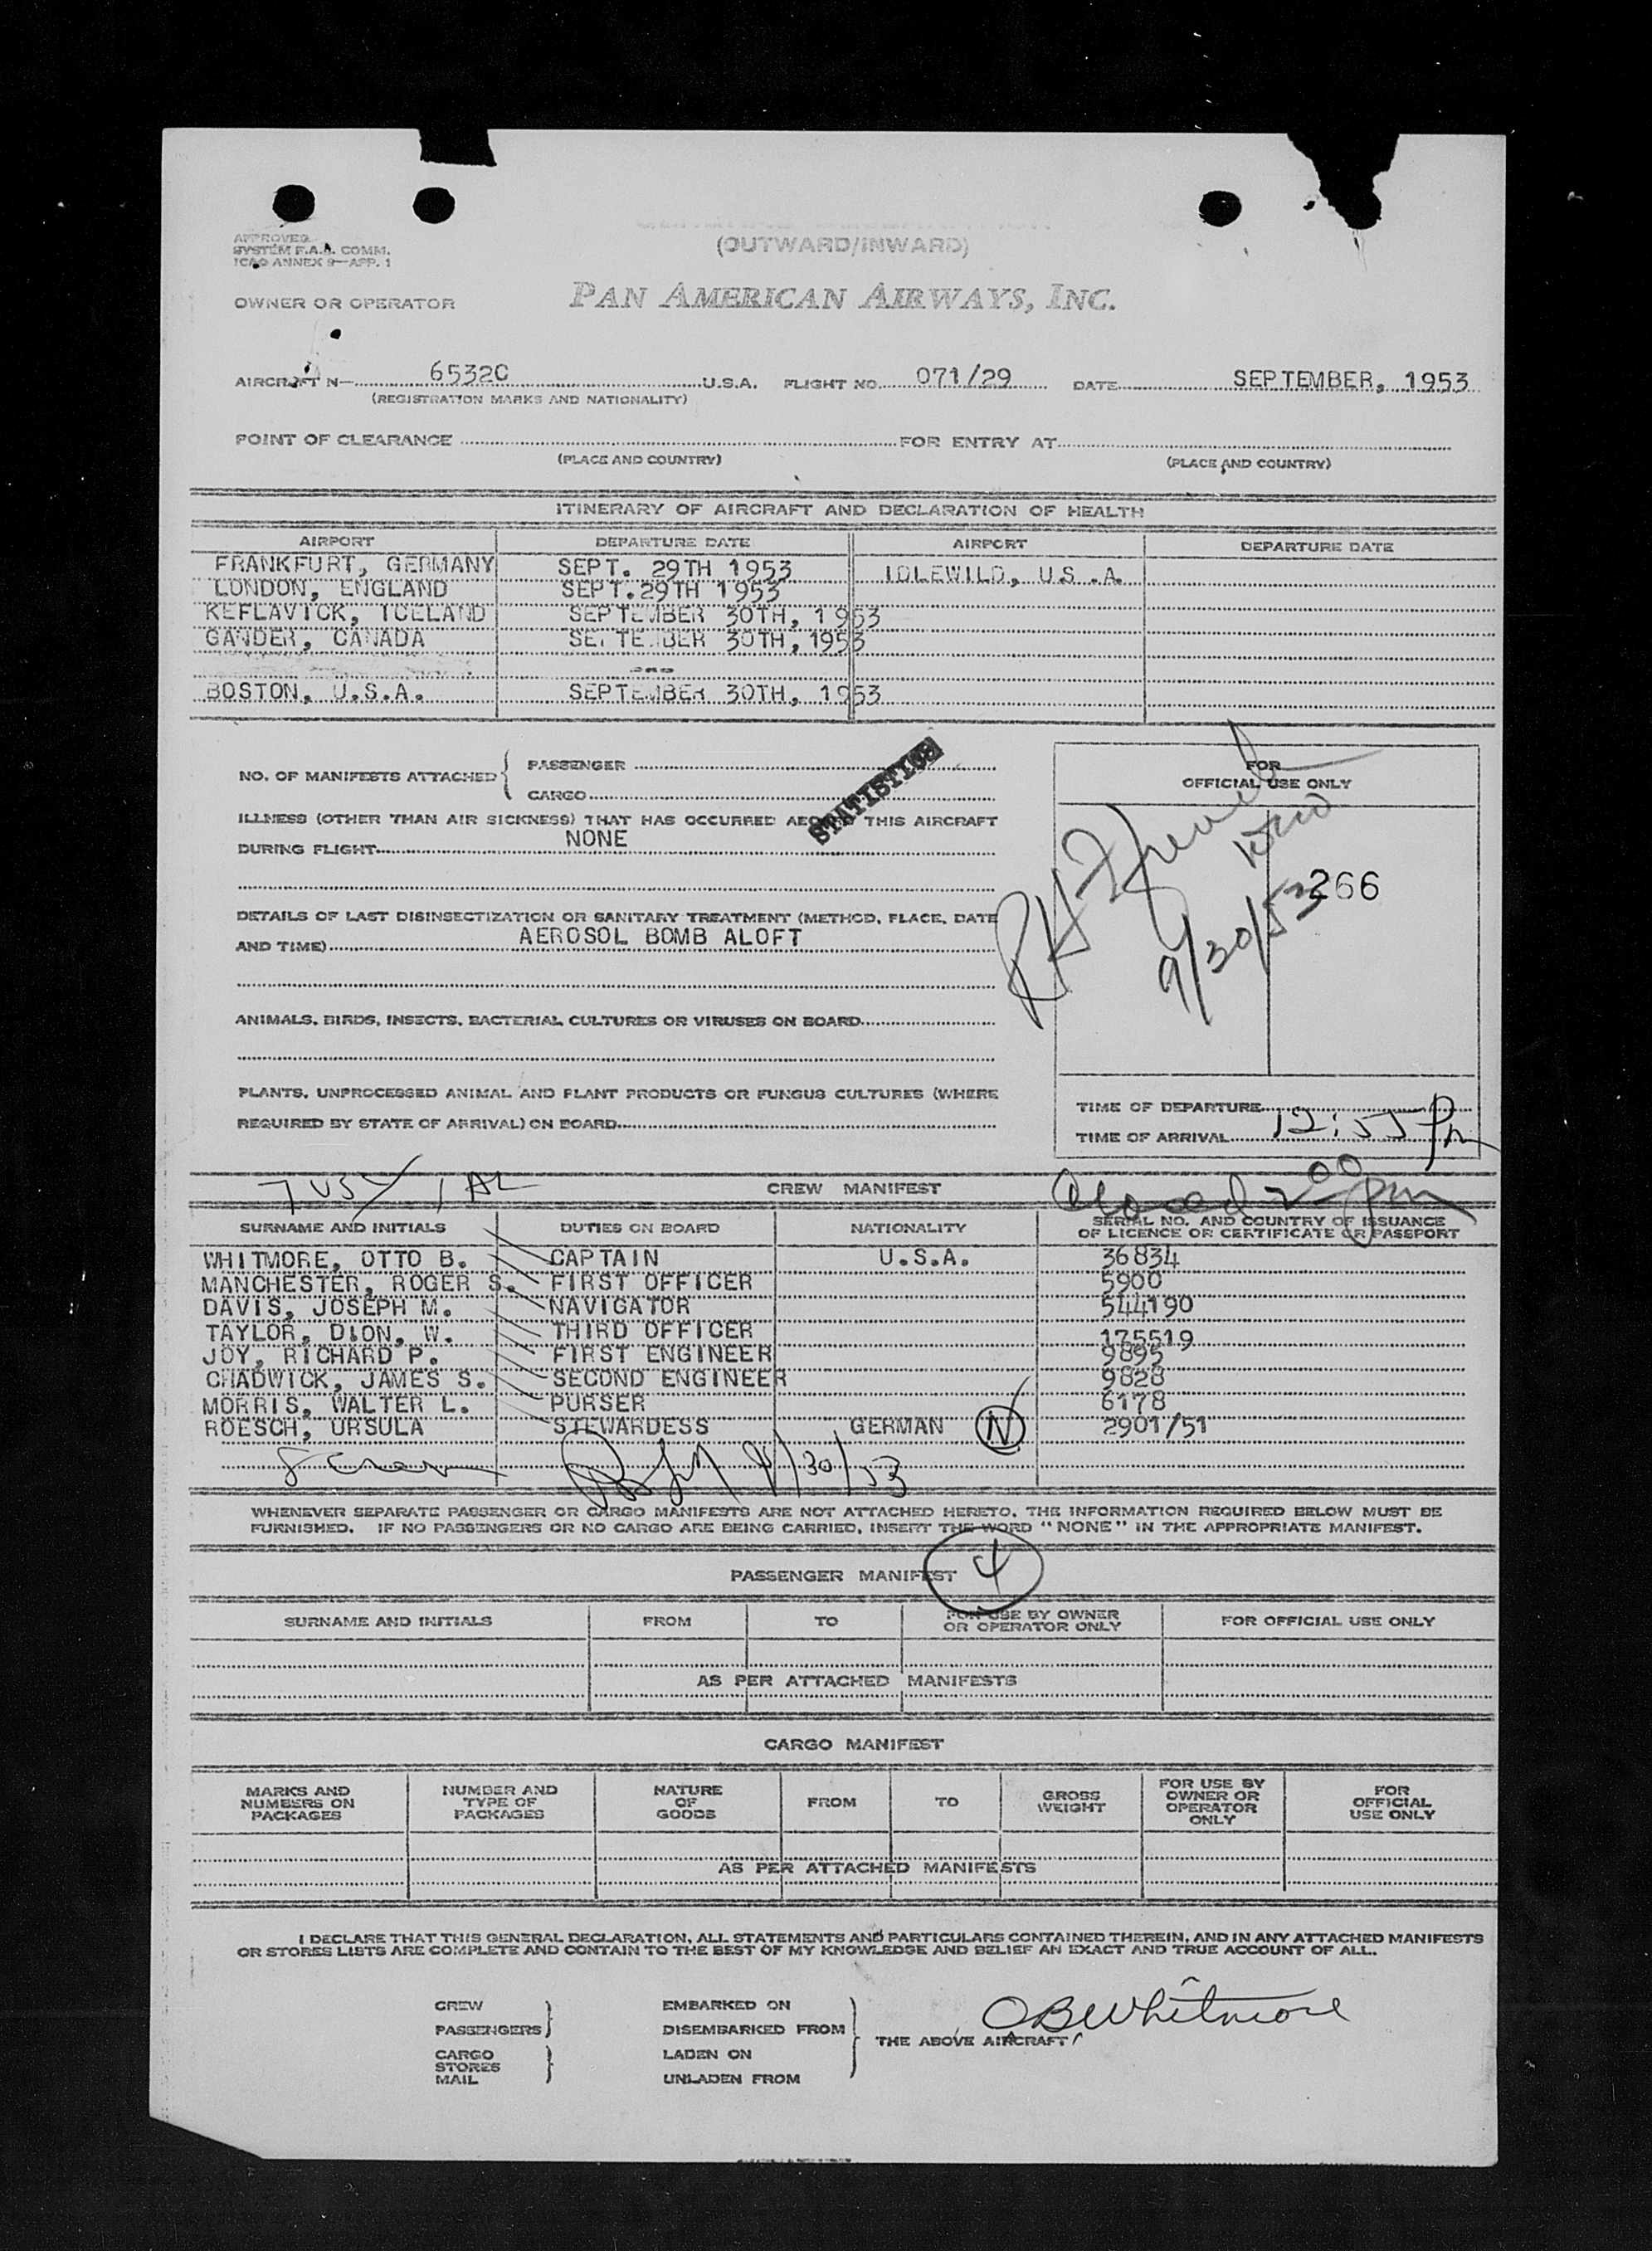 (OUTWARD/INWARD)
APPROVED
SYSTEM F.A.A. COMM.
ICAO ANNEX 9—APP. 1
OWNER OR OPERATOR PAN AMERICAN AIRWAYS, INC.
AIRCRAFT N— 6532C U.S.A. FLIGHT NO. 071/29 DATE SEPTEMBER, 1953
(REGISTRATION MARKS AND NATIONALITY)
POINT OF CLEARANCE FOR ENTRY AT
(PLACE AND COUNTRY) (PLACE AND COUNTRY)
ITINERARY OF AIRCRAFT AND DECLARATION OF HEALTH
AIRPORT DEPARTURE DATE AIRPORT DEPARTURE DATE
FRANKFURT, GERMANY SEPT. 29TH 1953 IDLEWILD, U.S.A.
LONDON, ENGLAND SEPT.29TH 1953
KEFLAVICK, ICELAND SEPTEMBER 30TH, 1953
GANDER, CANADA SEPTEMBER 30TH, 1953
BOSTON, U.S.A. SEPTEMBER 30TH, 1953
STATISTICS
NO. OF MANIFESTS ATTACHED { PASSENGER
CARGO
ILLNESS (OTHER THAN AIR SICKNESS) THAT HAS OCCURRED ABOARD THIS AIRCRAFT
DURING FLIGHT NONE
DETAILS OF LAST DISINSECTIZATION OR SANITARY TREATMENT (METHOD, PLACE, DATE
AND TIME) AEROSOL BOMB ALOFT
ANIMALS, BIRDS, INSECTS, BACTERIAL CULTURES OR VIRUSES ON BOARD
PLANTS, UNPROCESSED ANIMAL AND PLANT PRODUCTS OR FUNGUS CULTURES (WHERE
REQUIRED BY STATE OF ARRIVAL) ON BOARD
FOR
OFFICIAL USE ONLY
9/30/53
266
TIME OF DEPARTURE
TIME OF ARRIVAL 12:55 Pm
CREW MANIFEST
SURNAME AND INITIALS DUTIES ON BOARD NATIONALITY SERIAL NO. AND COUNTRY OF ISSUANCE
OF LICENCE OR CERTIFICATE OR PASSPORT
WHITMORE, OTTO B. CAPTAIN U.S.A. 36834
MANCHESTER, ROGER S. FIRST OFFICER 5900
DAVIS, JOSEPH M. NAVIGATOR 544190
TAYLOR, DION, W. THIRD OFFICER 175519
JOY, RICHARD P. FIRST ENGINEER 9895
CHADWICK, JAMES S. SECOND ENGINEER 9828
MORRIS, WALTER L. PURSER 6178
ROESCH, URSULA STEWARDESS GERMAN N 2901/51
9/30/53
WHENEVER SEPARATE PASSENGER OR CARGO MANIFESTS ARE NOT ATTACHED HERETO, THE INFORMATION REQUIRED BELOW MUST BE
FURNISHED. IF NO PASSENGERS OR NO CARGO ARE BEING CARRIED, INSERT THE WORD "NONE" IN THE APPROPRIATE MANIFEST.
PASSENGER MANIFEST 4
SURNAME AND INITIALS FROM TO FOR USE BY OWNER
OR OPERATOR ONLY FOR OFFICIAL USE ONLY
AS PER ATTACHED MANIFESTS
CARGO MANIFEST
MARKS AND
NUMBERS ON
PACKAGES
NUMBER AND
TYPE OF
PACKAGES
NATURE
OF
GOODS
FROM
TO
GROSS
WEIGHT
FOR USE BY
OWNER OR
OPERATOR
ONLY
FOR
OFFICIAL
USE ONLY
AS PER ATTACHED MANIFESTS
I DECLARE THAT THIS GENERAL DECLARATION, ALL STATEMENTS AND PARTICULARS CONTAINED THEREIN, AND IN ANY ATTACHED MANIFESTS
OR STORES LISTS ARE COMPLETE AND CONTAIN TO THE BEST OF MY KNOWLEDGE AND BELIEF AN EXACT AND TRUE ACCOUNT OF ALL.
CREW EMBARKED ON
PASSENGERS DISEMBARKED FROM
THE ABOVE AIRCRAFT OBWhitmore
CARGO LADEN ON
STORES
MAIL UNLADEN FROM